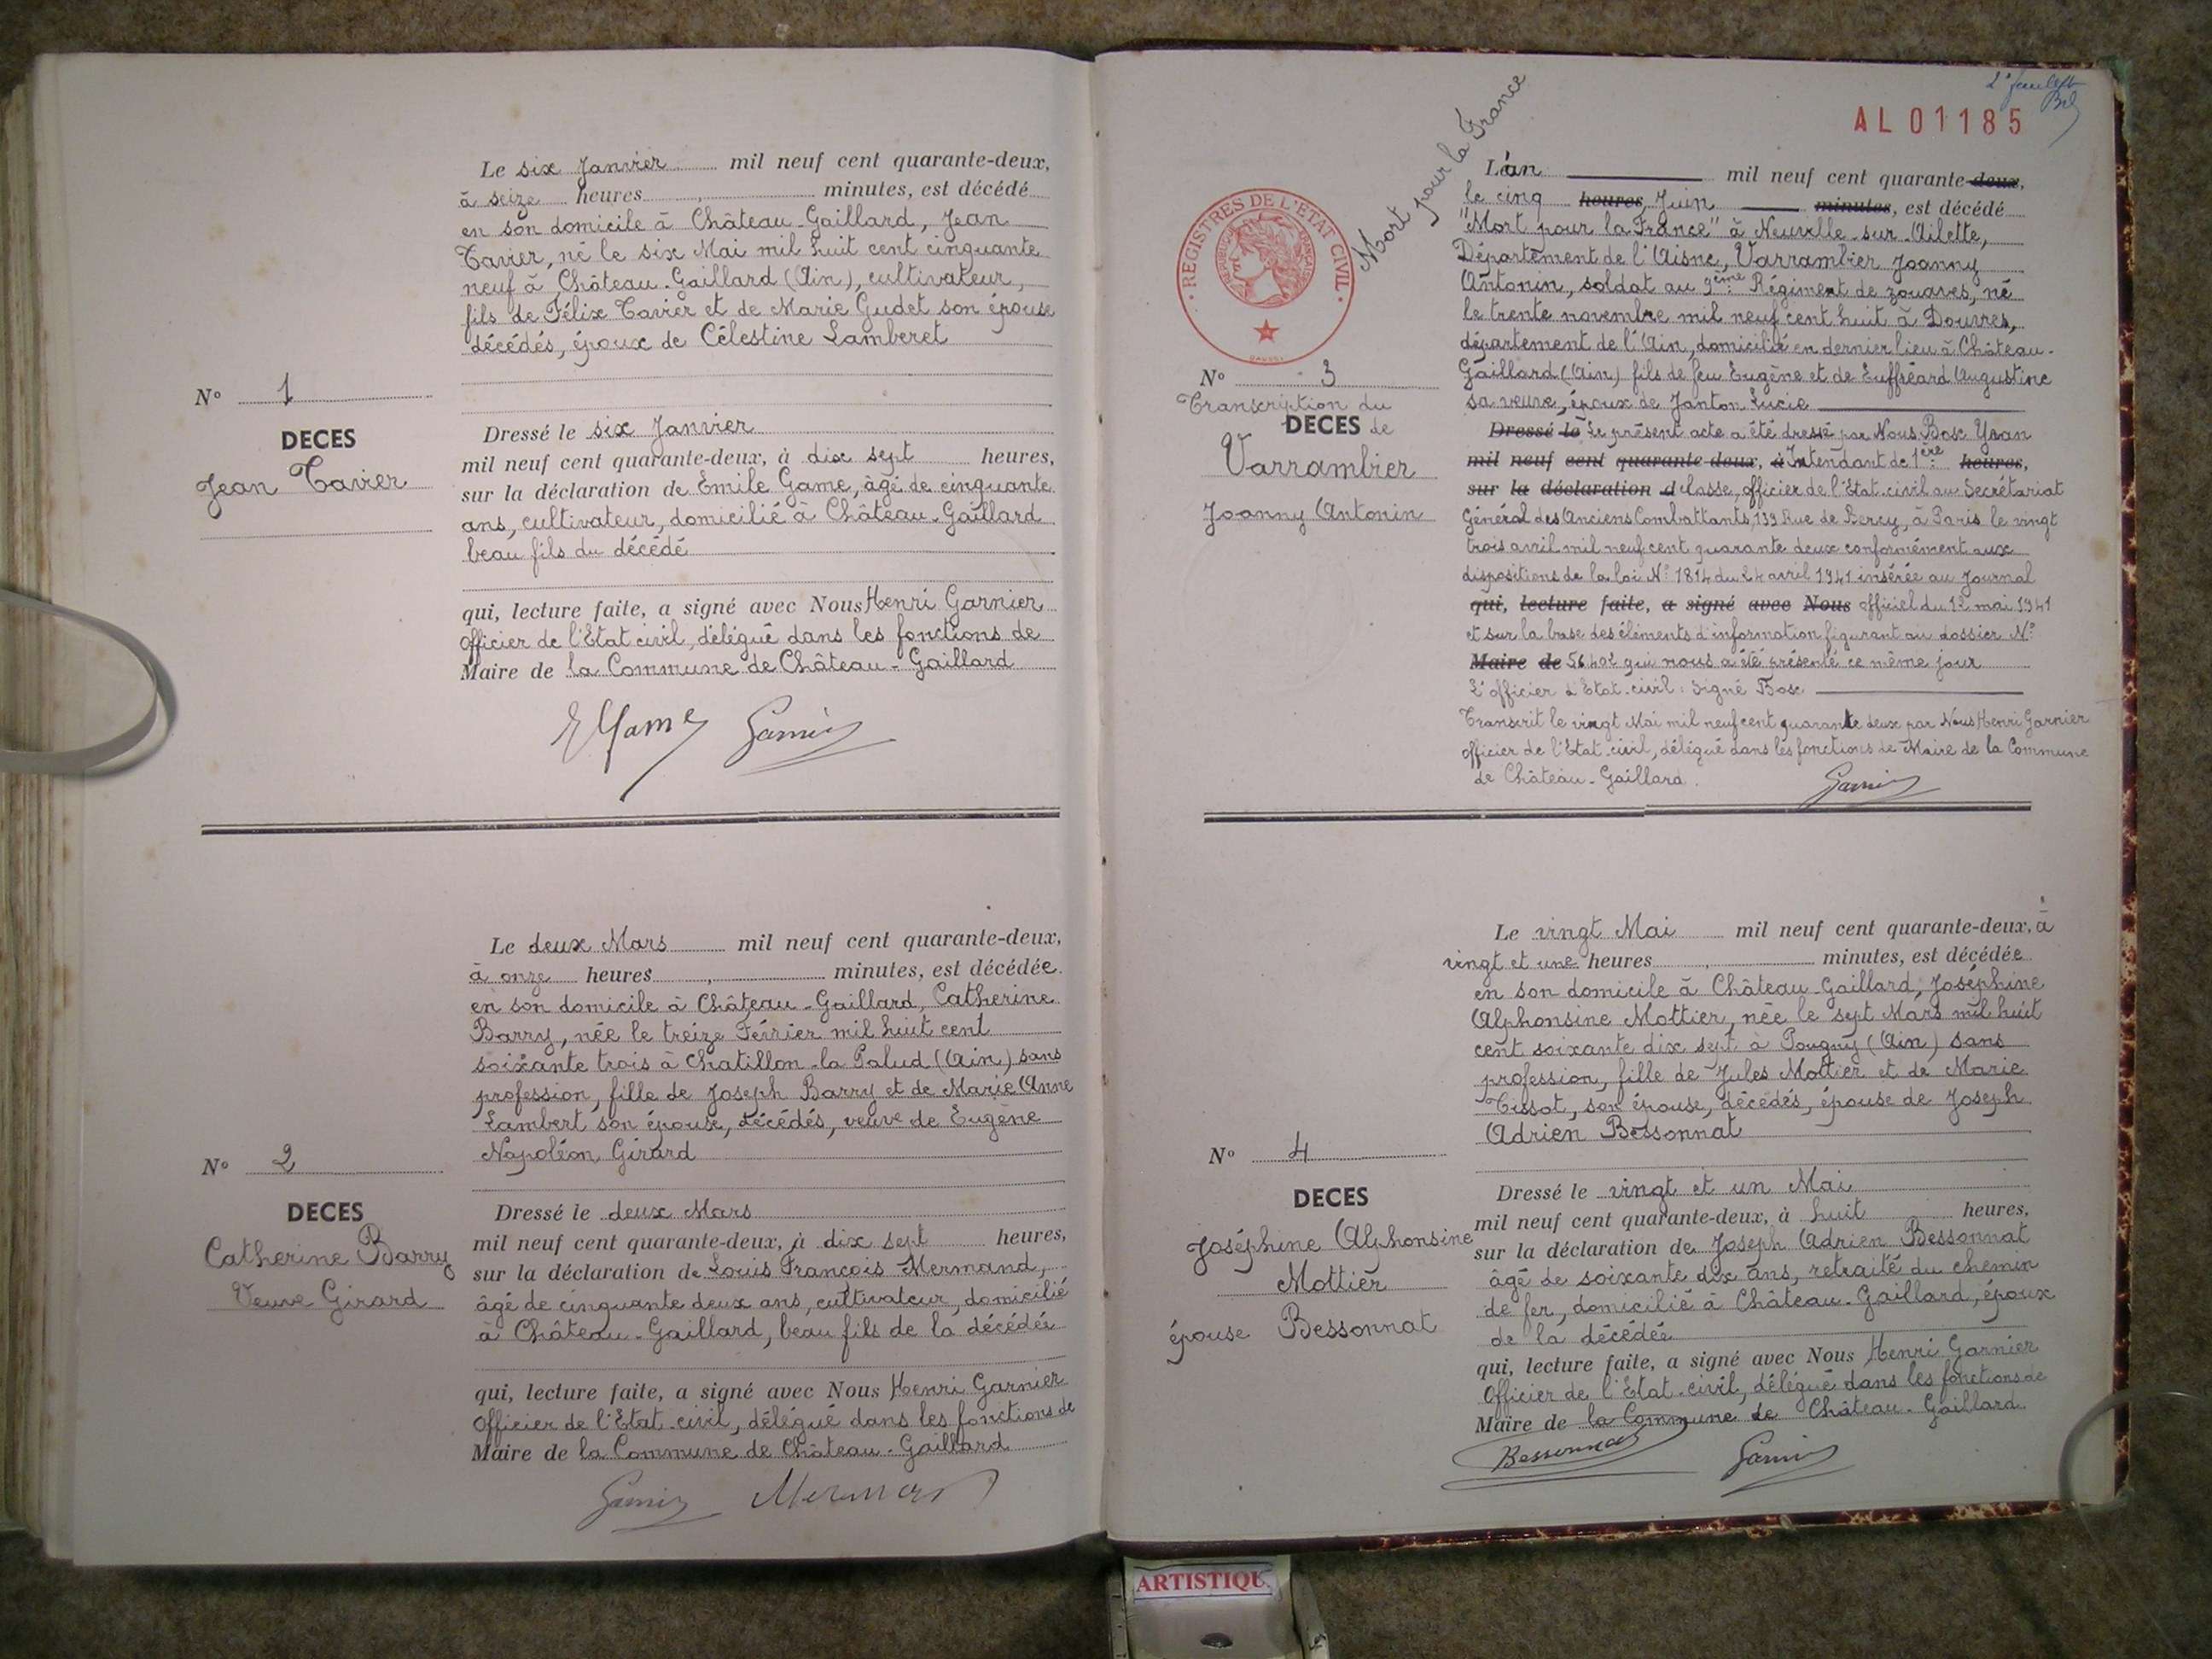 Le six Janvier mil neuf cent quarante-deux,
à seize heures, minutes, est décédé
en son domicile à Château-Gaillard, Jean
Tavier, né le six Mai mil huit cent cinquante
neuf à Château-Gaillard (Ain), cultivateur,
fils de Félix Tavier et de Marie Gudet son épouse
décédés, époux de Célestine Lamberet
N° 1
DECES
Jean Tavier
Dressé le six Janvier
mil neuf cent quarante-deux, à dix sept heures,
sur la déclaration de Emile Game, âgé de cinquante
ans, cultivateur, domicilié à Château-Gaillard
beau fils du décédé
qui, lecture faite, a signé avec Nous Henri Garnier
Officier de l'Etat civil, délégué dans les fonctions de
Maire de la Commune de Château-Gaillard
E Game Garnier
Le deux Mars mil neuf cent quarante-deux,
à onze heures, minutes, est décédée
en son domicile à Château-Gaillard, Catherine
Barry, née le treize Février mil huit cent
soixante trois à Chatillon-la-Palud (Ain) sans
profession, fille de Joseph Barry et de Marie Anne
Lambert son épouse, décédés, veuve de Eugène
Napoléon Girard
N° 2
DECES
Catherine Barry
Veuve Girard
Dressé le deux Mars
mil neuf cent quarante-deux, à dix sept heures,
sur la déclaration de Louis François Mermand,
âgé de cinquante deux ans, cultivateur, domicilié
à Château-Gaillard, beau fils de la décédée
qui, lecture faite, a signé avec Nous Henri Garnier
Officier de l'Etat-civil, délégué dans les fonctions de
Maire de la Commune de Château-Gaillard
Garnier Mermand
AL 01185
Mort pour la France
REGISTRES DE L'ETAT CIVIL
L'an mil neuf cent quarante-deux,
le cinq heures, Juin minutes, est décédé
"Mort pour la France" à Neuville-sur-Ailette,
Département de l'Aisne, Varrambier Joanny
Antonin, soldat au 9ème Régiment de zouaves, né
le trente novembre mil neuf cent huit à Douvres,
département de l'Ain, domicilié en dernier lieu à Château-
Gaillard (Ain) fils de feu Eugène et de Euffréard Augustine
sa veuve, époux de Janton Lucie
N° 3
Transcription du
DECES de
Varrambier
Joanny Antonin
Dressé le Le présent acte a été dressé par Nous Bosc Yvan
mil neuf cent quarante-deux, à Intendant de 1ère heures,
sur la déclaration d classe, officier de l'Etat-civil au Secrétariat
Général des Anciens Combattants, 139 Rue de Bercy, à Paris le vingt
trois avril mil neuf cent quarante deux conformément aux
dispositions de la loi N° 1814 du 24 avril 1941 insérée au Journal
qui, lecture faite, a signé avec Nous officiel du 12 mai 1941
et sur la base des éléments d'information figurant au dossier N°
Maire de 56402 qui nous a été présenté ce même jour
L'officier d'Etat-civil: Signé Bosc
Transcrit le vingt Mai mil neuf cent quarante deux par Nous Henri Garnier
officier de l'Etat-civil, délégué dans les fonctions de Maire de la Commune
de Château-Gaillard.
Garnier
Le vingt Mai mil neuf cent quarante-deux, à
vingt et une heures, minutes, est décédée
en son domicile à Château-Gaillard, Joséphine
Alphonsine Mottier, née le sept Mars mil huit
cent soixante dix sept à Pougny (Ain) sans
profession, fille de Jules Mottier et de Marie
Tissot, son épouse, décédés, épouse de Joseph
Adrien Bessonnat
N° 4
DECES
Joséphine Alphonsine
Mottier
épouse Bessonnat
Dressé le vingt et un Mai
mil neuf cent quarante-deux, à huit heures,
sur la déclaration de Joseph Adrien Bessonnat
âgé de soixante dix ans, retraité du chemin
de fer, domicilié à Château-Gaillard, époux
de la décédée
qui, lecture faite, a signé avec Nous Henri Garnier
Officier de l'Etat-civil, délégué dans les fonctions de
Maire de la Commune de Château-Gaillard
Bessonnat Garnier
ARTISTIQU